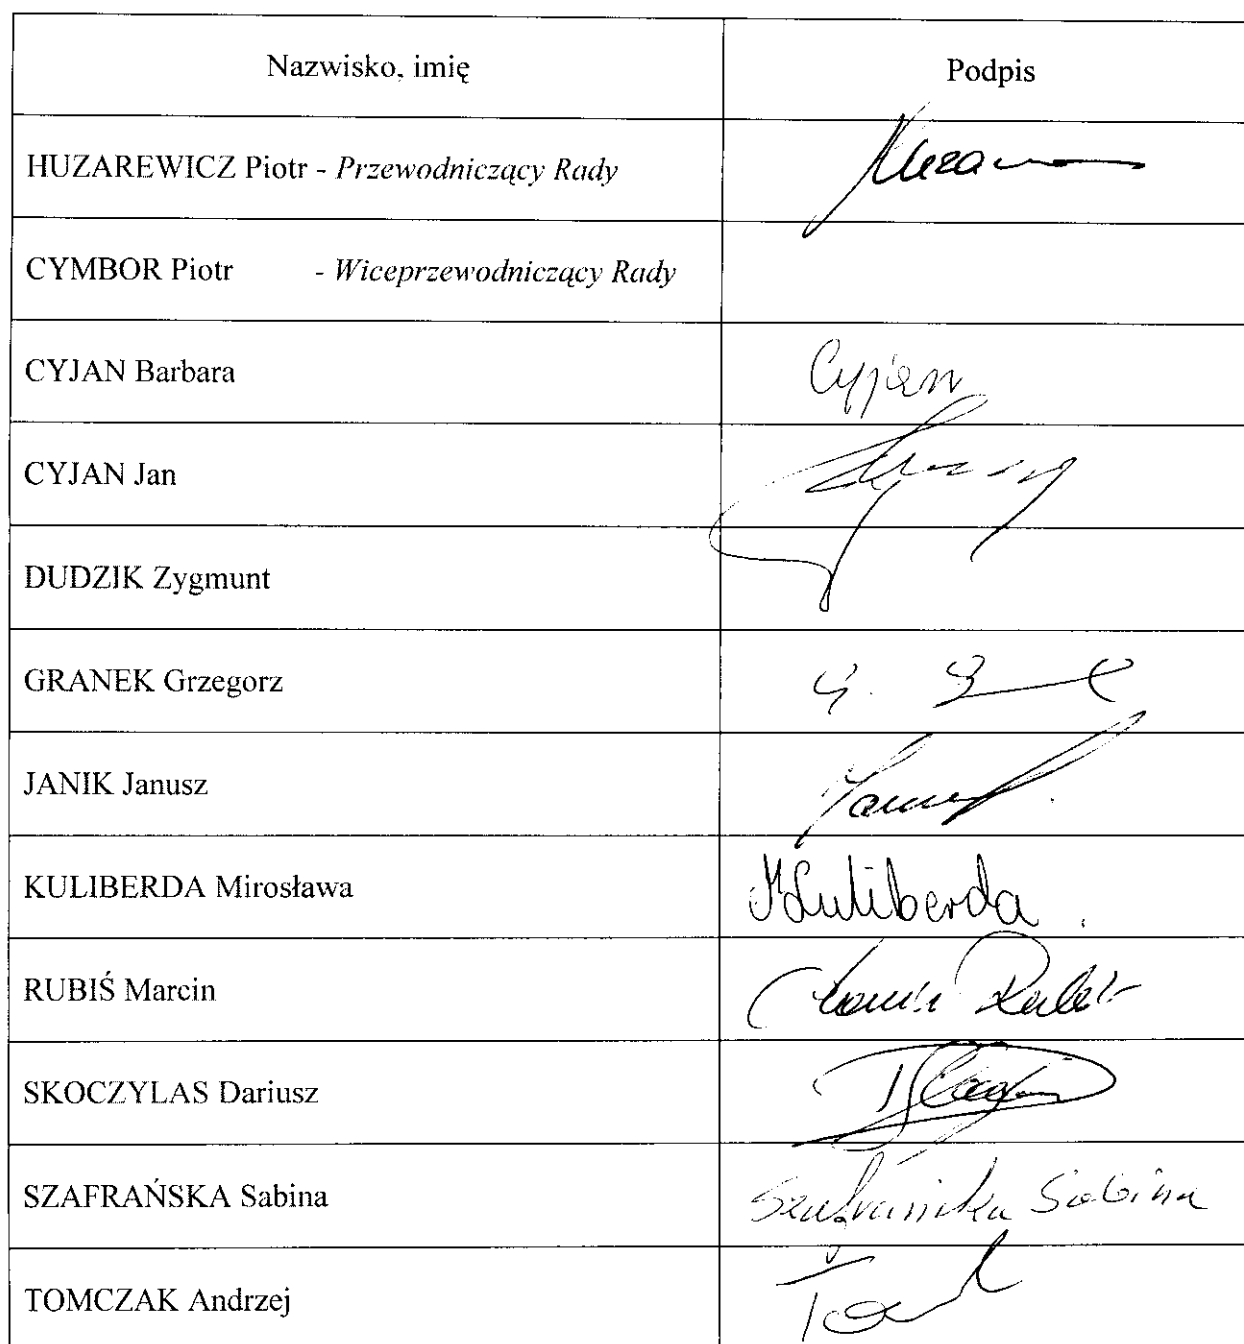 Nazwisko, imię Podpis
HUZAREWICZ Piotr - Przewodniczący Rady
CYMBOR Piotr - Wiceprzewodniczący Rady
CYJAN Barbara Cyjan
CYJAN Jan
DUDZIK Zygmunt
GRANEK Grzegorz
JANIK Janusz
KULIBERDA Mirosława MKuliberda
RUBIŚ Marcin
SKOCZYLAS Dariusz
SZAFRAŃSKA Sabina Szafrańska Sabina
TOMCZAK Andrzej